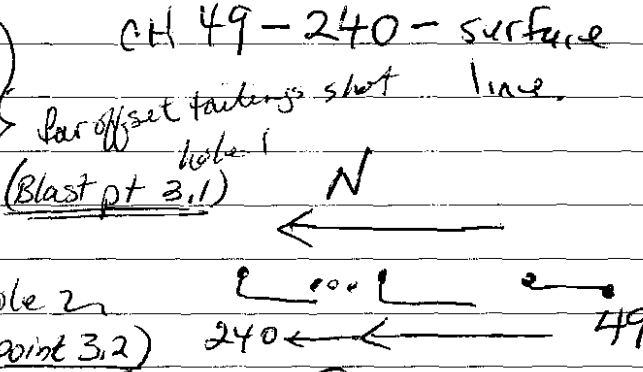 CH 49-240 - surface
line.
far offset tailings shot
hole 1
(Blast pt 3,1)
N
ole 2
point 3,2)
240
49